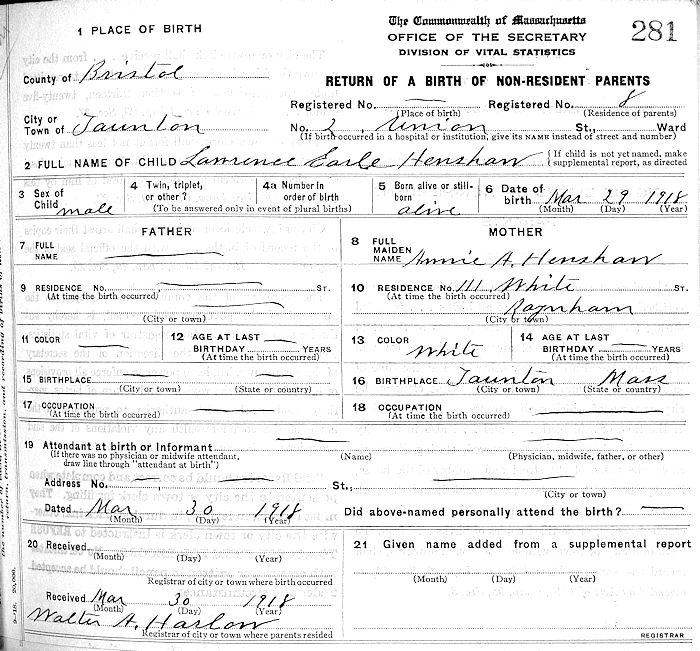 1 PLACE OF BIRTH
The Commonwealth of Massachusetts
281
OFFICE OF THE SECRETARY
DIVISION OF VITAL STATISTICS
County of Bristol
RETURN OF A BIRTH OF NON-RESIDENT PARENTS
Registered No. — (Place of birth) Registered No. 8 (Residence of parents)
City or Town of Taunton
No. 2, Union St., Ward
(If birth occurred in a hospital or institution, give its NAME instead of street and number)
2 FULL NAME OF CHILD Lawrence Earle Henshaw {If child is not yet named, make supplemental report, as directed
3 Sex of Child male
4 Twin, triplet, or other?
4a Number in order of birth
(To be answered only in event of plural births)
5 Born alive or still-born alive
6 Date of birth Mar 29 1918
(Month) (Day) (Year)
FATHER
MOTHER
7 FULL NAME —
8 FULL MAIDEN NAME Annie A. Henshaw
9 RESIDENCE No. — ST.
(At time the birth occurred)
—
(City or town)
10 RESIDENCE No. 111 White ST.
(At time the birth occurred)
Raynham
(City or town)
11 COLOR —
12 AGE AT LAST BIRTHDAY — YEARS
(At time the birth occurred)
13 COLOR White
14 AGE AT LAST BIRTHDAY — YEARS
(At time the birth occurred)
15 BIRTHPLACE — —
(City or town) (State or country)
16 BIRTHPLACE Taunton Mass
(City or town) (State or country)
17 OCCUPATION —
(At time the birth occurred)
18 OCCUPATION —
(At time the birth occurred)
19 Attendant at birth or Informant — —
(If there was no physician or midwife attendant, draw line through "attendant at birth")
(Name) (Physician, midwife, father, or other)
Address No. — St.; —
(City or town)
Dated Mar 30 1918
(Month) (Day) (Year)
Did above-named personally attend the birth? —
20 Received
(Month) (Day) (Year)
Registrar of city or town where birth occurred
Received Mar 30 1918
(Month) (Day) (Year)
Walter A. Harlow
Registrar of city or town where parents resided
21 Given name added from a supplemental report
(Month) (Day) (Year)
REGISTRAR